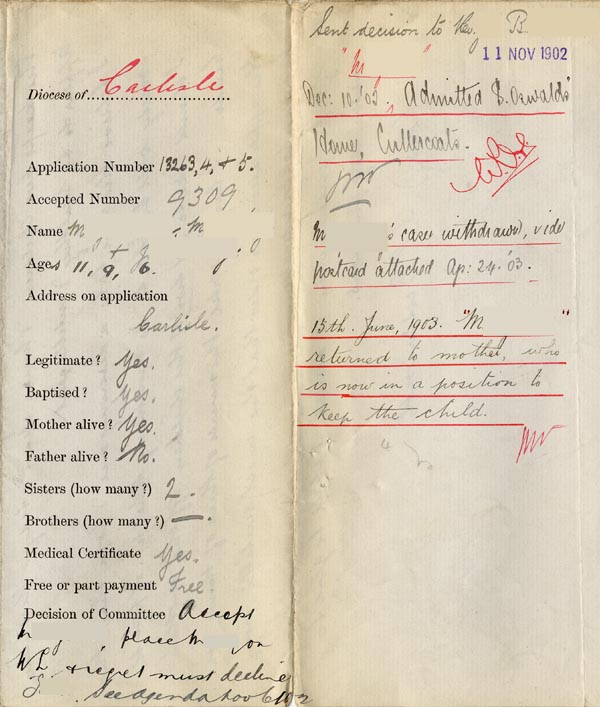 Diocese of Carlisle
Application Number 13263, 4, + 5.
Accepted Number 9309
Name M M
Ages 11, 9, 6.
Address on application
Carlisle.
Legitimate? Yes.
Baptised? Yes.
Mother alive? Yes.
Father alive? No.
Sisters (how many?) 2.
Brothers (how many?) —.
Medical Certificate Yes.
Free or part payment Free.
Decision of Committee Accept
place on
WL & regret must decline
See agenda book
Sent decision to Rev. B
11 NOV 1902
"M "
Dec: 10. '03, Admitted S. Oswald's
Home, Cullercoats.
M 's case withdrawn, vide
postcard attached Ap: 24. '03.
15th. June, 1903. "M "
returned to mother, who
is now in a position to
keep the child.